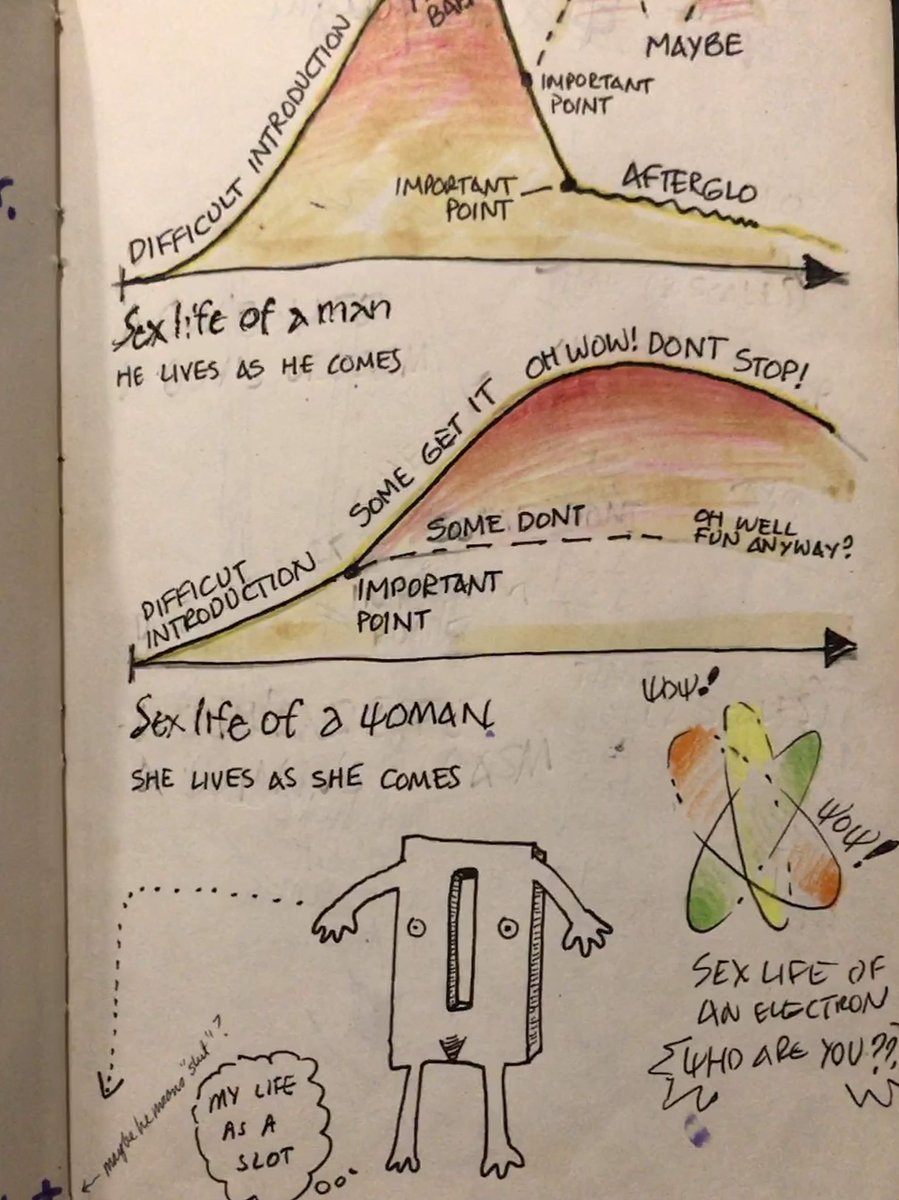 DIFFICULT INTRODUCTION
MAYBE
IMPORTANT
POINT
IMPORTANT
POINT
AFTERGLO
Sex life of a man
HE LIVES AS HE COMES
OH WOW! DONT STOP!
SOME GET IT
SOME DONT
OH WELL
FUN ANYWAY?
DIFFICUT
INTRODUCTION
IMPORTANT
POINT
Sex life of a WOMAN
SHE LIVES AS SHE COMES
WOW!
WOW!
SEX LIFE OF
AN ELECTRON
WHO ARE YOU??
maybe he means "slut"?
MY LIFE
AS A
SLOT